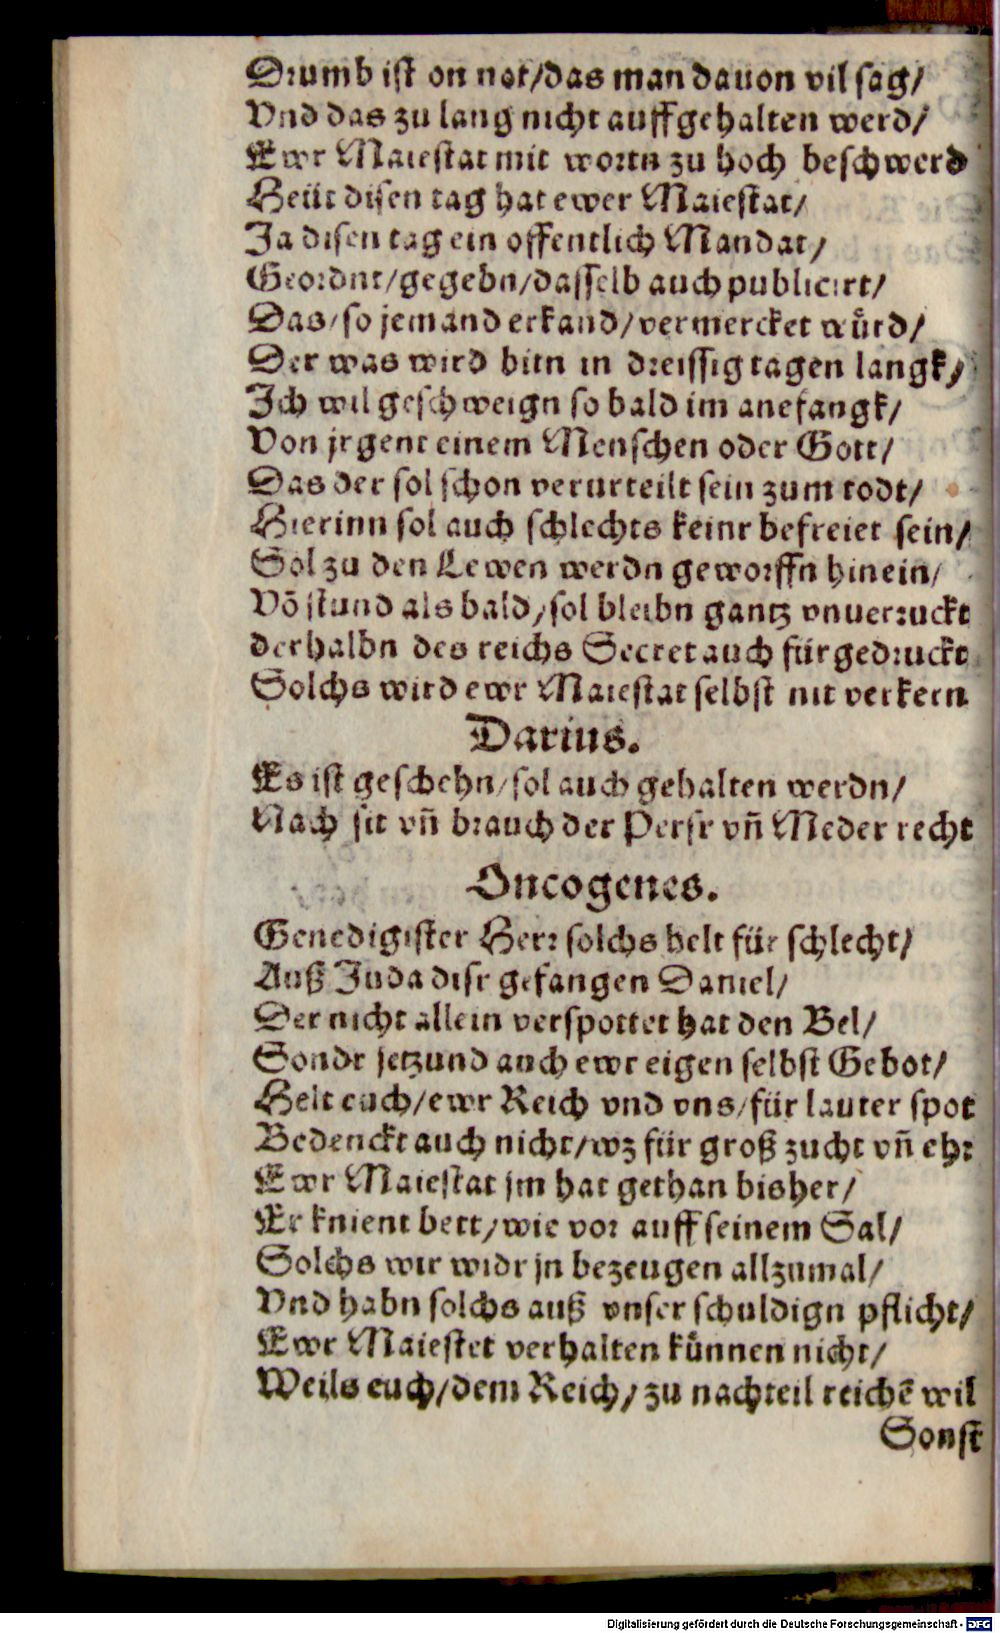 Drumb ist on not/das man dauon vil sag/
Vnd das zu lang nicht auffgehalten werd/
Ewr Maiestat mit wortn zu hoch beschwerd
Heüt disen tag hat ewer Maiestat/
Ja disen tag ein offentlich Mandat/
Geordnt/gegebn/dasselb auch publicirt/
Das/so jemand erkand/vermercket wuͤrd/
Der was wird bitn in dreissig tagen langk/
Ich wil geschweign so bald im anefangk/
Von jrgent einem Menschen oder Gott/
Das der sol schon verurteilt sein zum todt/
Hierinn sol auch schlechts keinr befreiet sein/
Sol zu den Lewen werdn geworffn hinein/
Võ stund als bald/sol bleibn gantz vnuerruckt
derhalbn des reichs Secret auch fürgedruckt
Solchs wird ewr Maiestat selbst nit verkern
Darius.
Es ist geschehn/sol auch gehalten werdn/
Nach sit vñ brauch der Persr vñ Meder recht
Oncogenes.
Genedigister Herr solchs helt für schlecht/
Auß Juda disr gefangen Daniel/
Der nicht allein verspottet hat den Bel/
Sondr jetzund auch ewr eigen selbst Gebot/
Helt euch/ewr Reich vnd vns/für lauter spot
Bedenckt auch nicht/wz für groß zucht vñ ehr
Ewr Maiestat jm hat gethan bisher/
Er knient bett/wie vor auff seinem Sal/
Solchs wir widr jn bezeugen allzumal/
Vnd habn solchs auß vnser schuldign pflicht/
Ewr Maiestet verhalten kuͤnnen nicht/
Weils euch/dem Reich/zu nachteil reichẽ wil
Sonst
Digitalisierung gefördert durch die Deutsche Forschungsgemeinschaft - DFG